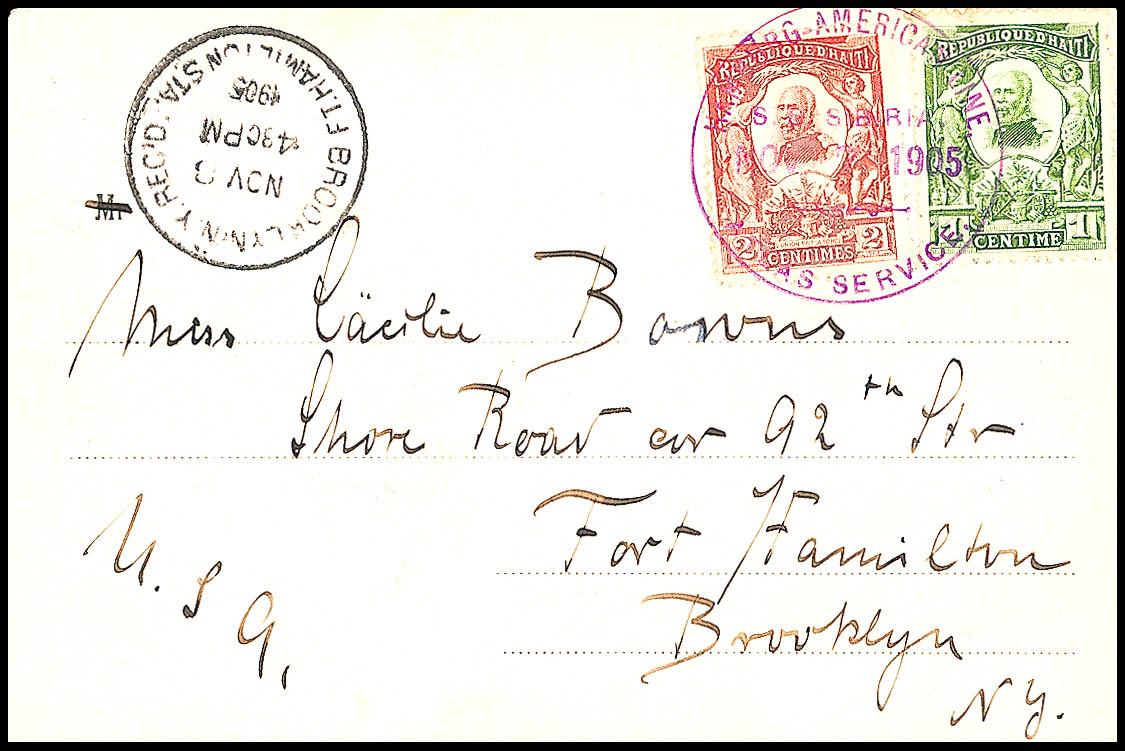 BROOKLYN N.Y. REC'D.
FT. HAMILTON STA.
NOV 8
430 PM
1905
HAMBURG-AMERICAN LINE
S. S. SIBERIA
1905
ATLAS SERVICE
REPUBLIQUE D'HAITI
2 2
CENTIMES
REPUBLIQUE D'HAITI
1 1
CENTIME
M
Miss Cäcilie
Shore Road cor 92th Str
Fort Hamilton
Brooklyn
NY.
U. S A,